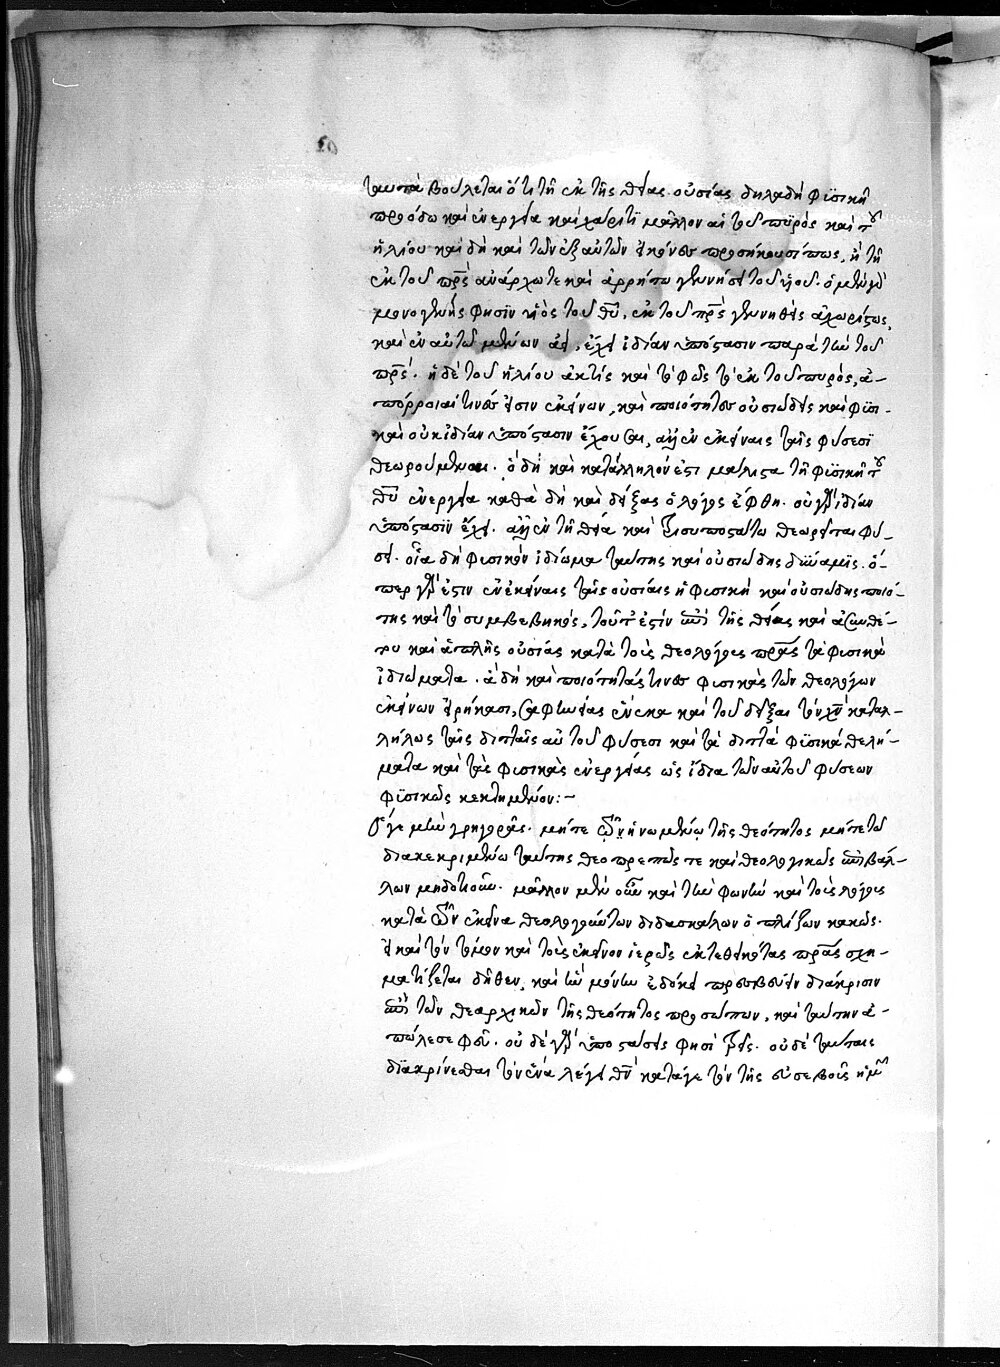 ταυτὰ βούλεται ὅτι τῇ ἐκ τῆς θείας οὐσίας δηλαδὴ φϋσικῇ
προόδω καὶ ἐνεργεία καὶ χάριτι μᾶλλον αἱ τοῦ πϋρὸς καὶ τοῦ
ἡλίου καὶ δὴ καὶ τῶν ἐξ αὐτῶν εἰκόνες προσήκουσί πως, ἢ τῇ
ἐκ τοῦ πρς ἀνάρχω τε καὶ ἀρρήτω γεννήσει τοῦ υἱοῦ. ὁ μὲν γὰρ
μονογενής φησϊν υἱὸς τοῦ θυ, ἐκ τοῦ πρς γεννηθεὶς ἀχωρίστως,
καὶ ἐν αὐτῶ μένων ἀεὶ, ἔχει ἰδίαν ὑπόστασιν παρὰ τὴν τοῦ
πρς. ἡ δὲ τοῦ ἡλίου ἀκτὶς καὶ τὸ φῶς τὸ ἐκ τοῦ πυρὸς, ἀ-
πόρροιαί τινές εἰσιν ἐκείνων, καὶ ποιότητες οὐσιώδεις καὶ φϋσι-
καὶ οὐκ ἰδίαν ὑπόστασιν ἔχουσαι, ἀλλ' ἐν ἐκείναις ταῖς φύσεσϊ
θεωρούμεναι. ὃ δὴ καὶ κατάλληλόν ἐστι μάλιστα τῇ φϋσικῇ τοῦ
θυ ἐνεργεία καθὰ δὴ καὶ δείξας ὁ λόγος ἔφθη. οὐ γὰρ ἰδίαν
ὑπόστασϊν ἔχει. ἀλλ' ἐν τῇ θεία καὶ τρισυποστάτω θεωρεῖται φύ-
σει. οἷα δὴ φυσικὸν ἰδίωμα ταύτης καὶ οὐσιώδης δϋναμϊς. ὅ-
περ γάρ ἐστιν ἐν ἐκείναις ταῖς οὐσίαις ἡ φυσικὴ καὶ οὐσιώδης ποιό-
της καὶ τὸ συμβεβηκὸς, τοῦτ' ἐστὶν ἐπὶ τῆς θείας καὶ ἀσυνθέ-
του καὶ ἁπλῆς οὐσίας κατὰ τοὺς θεολόγους πρας τὰ φυσικὰ
ἰδιώματα. ἃ δὴ καὶ ποιότητάς τινες φυσικὰς τῶν θεολόγων
ἐκείνων εἰρήκασι, σαφηνείας ἕνεκα καὶ τοῦ δεῖξαι τὸν χν καταλ-
λήλως ταῖς διτταῖς αὐτοῦ φύσεσι καὶ τὰ διττὰ φϋσικὰ θελή-
ματα καὶ τὰς φυσικὰς ἐνεργείας ὡς ἴδια τῶν αὐτοῦ φύσεων
φϋσικῶς κεκτημένον:~
Ὅ γε μὴν γρηγορᾶς. μήτε τῶ ἡνωμένω τῆς θεότητος μήτε τῶ
διακεκριμένω ταύτης θεοπρεπῶς τε καὶ θεολογικῶς ἐπιβάλ-
λων μηδοτιοῦν. μᾶλλον μὲν οὖν καὶ τὴν φωνὴν καὶ τοὺς λόγους
κατὰ τῶν ἐκεῖνα θεολογούντων διδασκάλων ὁπλίζων κακῶς.
εἰ καὶ τὸν τόμον καὶ τοὺς ἐκεῖνον ἱερῶς ἐκτεθεικότας πρας σχη-
ματίζεται δῆθεν, καὶ ἣν μόνην ἐδόκει πρεσβεύειν διάκρισιν
ἐπὶ τῶν θεαρχικῶν τῆς θεότητος προσώπων, καὶ ταύτην ἀ-
πώλεσε φεῦ. οὐδὲ γὰρ ὑποστάσεις φησὶ τρεῖς. οὐδὲ ταύταις
διακρίνεσθαι τὸν ἕνα λέγει θν κατάγε τὸν τῆς εὐσεβοῦς ἡμῶν